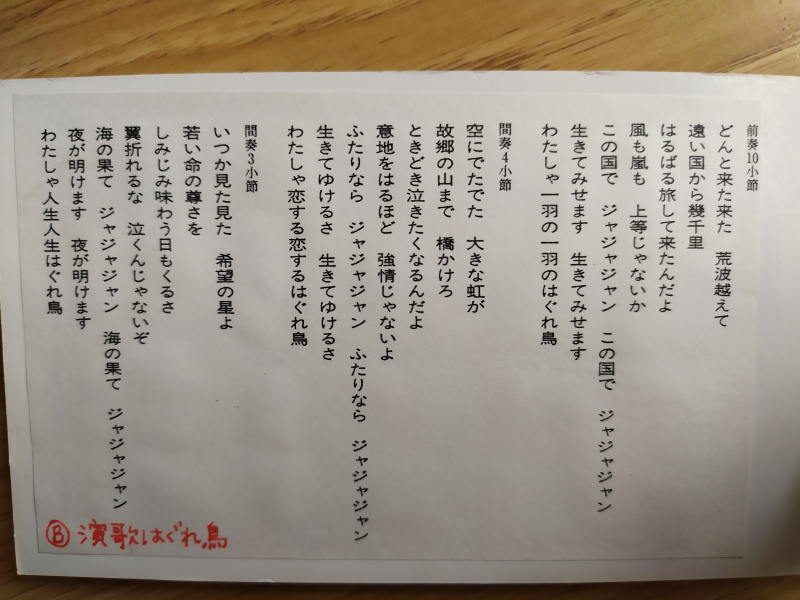 前奏10小節
どんと来た来た　荒波越えて
遠い国から幾千里
はるばる旅して来たんだよ
風も嵐も　上等じゃないか
この国で　ジャジャジャン　この国で　ジャジャジャン
生きてみせます　生きてみせます
わたしゃ一羽の一羽のはぐれ鳥
間奏4小節
空にでたでた　大きな虹が
故郷の山まで　橋かけろ
ときどき泣きたくなるんだよ
意地をはるほど　強情じゃないよ
ふたりなら　ジャジャジャン　ふたりなら　ジャジャジャン
生きてゆけるさ　生きてゆけるさ
わたしゃ恋する恋するはぐれ鳥
間奏3小節
いつか見た見た　希望の星よ
若い命の尊さを
しみじみ味わう日もくるさ
翼折れるな　泣くんじゃないぞ
海の果て　ジャジャジャン　海の果て　ジャジャジャン
夜が明けます　夜が明けます
わたしゃ人生人生はぐれ鳥
Ⓑ 演歌はぐれ鳥